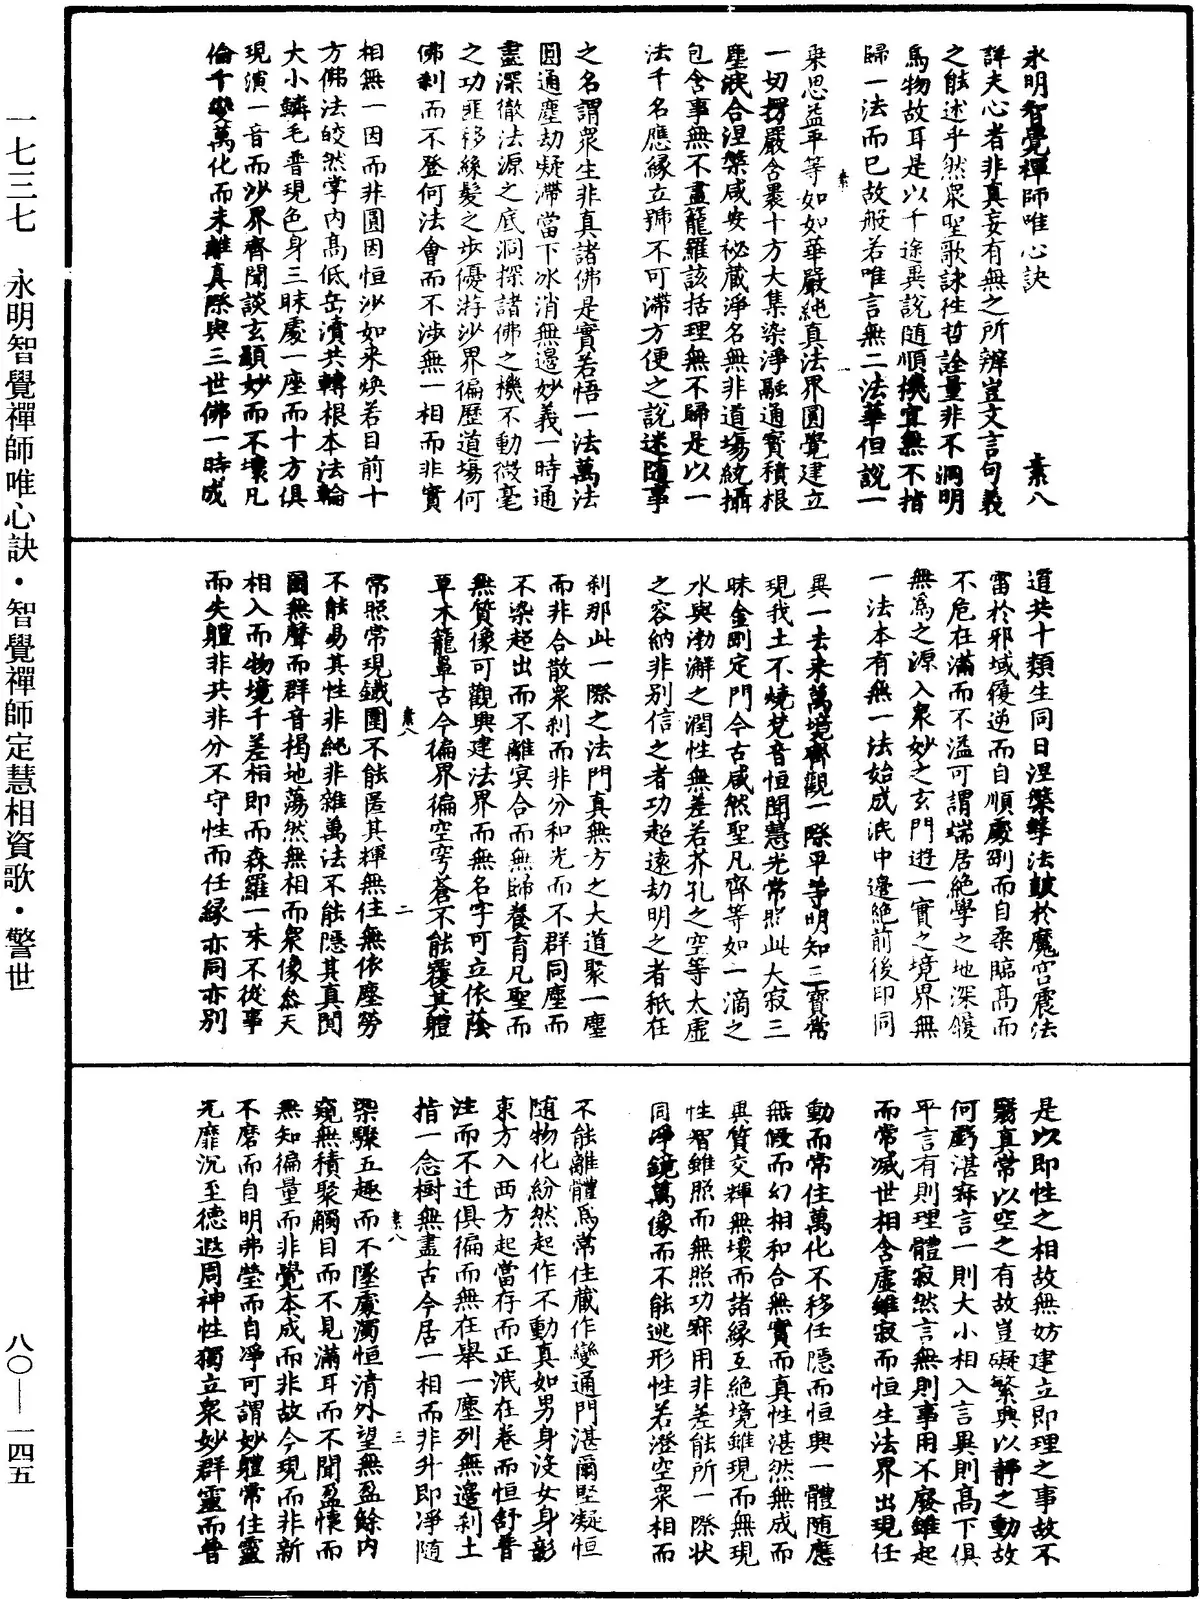 永明智覺禪師唯心訣　素八
詳夫心者非真妄有無之所辨豈文言句義
之能述乎然衆聖歌詠徃哲詮量非不洞明
爲物故耳是以千途異說随順機宜無不指
歸一法而已故般若唯言無二法華但說一
乗思益平等如如華嚴純真法界圓覺建立
一切楞嚴含褁十方大集染淨融通寳積根
塵泯合涅槃咸安秘蔵淨名無非道塲統攝
包含事無不盡籠羅該括理無不歸是以一
法千名應縁立號不可滞方便之說迷随事
之名謂衆生非真諸佛是實若悟一法萬法
圓通塵劫疑滞當下冰消無邊妙義一時通
盡深徹法源之底洞探諸佛之機不動微毫
之功匪移絲髮之步優游沙界徧歷道塲何
佛刹而不登何法會而不渉無一相而非實
相無一因而非圓因恒沙如来焕若目前十
方佛法皎然掌内髙低岳瀆共轉根本法輪
大小鱗毛普現色身三昧處一座而十方俱
現演一音而沙界齊聞談玄顯妙而不壞凡
倫千變萬化而未離真際與三世佛一時成
道共十類生同日涅槃擊法鼓於魔宫震法
雷於邪域履逆而自順處剛而自柔臨髙而
不危在滿而不溢可謂端居絶學之地深履
無爲之源入衆妙之玄門逰一實之境界無
一法本有無一法始成泯中邊絶前後印同
異一去来萬境齊觀一際平等明知三寳常
現我土不燒梵音恒聞慧光常照此大寂三
昧金剛定門今古咸然聖凡齊等如一滴之
水與渤澥之潤性無差若芥孔之空等太虚
之容納非别信之者功超遠劫明之者秖在
刹那此一際之法門真無方之大道聚一塵
而非合散衆刹而非分和光而不群同塵而
不染超出而不離冥合而無歸養育凡聖而
無質像可觀興建法界而無名字可立依蔭
草木籠羅古今徧界徧空穹蒼不能覆其體
常照常現鐵圍不能匿其輝無住無依塵勞
不能易其性非純非雜萬法不能隱其真閴
爾無聲而群音揭地蕩然無相而衆像叅天
相入而物境千差相即而森羅一味不從事
而失體非共非分不守性而任縁亦同亦别
是以即性之相故無妨建立即理之事故不
翳真常以空之有故豈礙繁興以靜之動故
何虧湛寂言一則大小相入言異則髙下俱
平言有則理體寂然言無則事用不廢雖起
而常滅世相含虚雖寂而恒生法界出現任
動而常住萬化不移任隱而恒興一體随應
無假而幻相和合無實而真性湛然無成而
異質交輝無壞而諸縁互絶境雖現而無現
性智雖照而無照功寂用非差能所一際状
同淨鏡萬像而不能逃形性若澄空衆相而
不能離體爲常住蔵作變通門湛爾堅凝恒
随物化紛然起作不動真如男身没女身彰
東方入西方起當存而正泯在巻而恒舒普
注而不迁俱徧而無在舉一塵列無邊刹土
指一念樹無盡古今居一相而非升即凈随
染驟五趣而不墜處濁恒清外望無盈餘内
窺無積聚觸目而不見滿耳而不聞盈懷而
無知徧量而非覺本成而非故今現而非新
不磨而自明弗瑩而自凈可謂妙體常住靈
光靡沉至德遐周神性獨立衆妙群靈而普
素
一
素八
二
素八
三
一七三七　永明智覺禪師唯心訣・智覺禪師定慧相資歌・警世
八〇——一四五